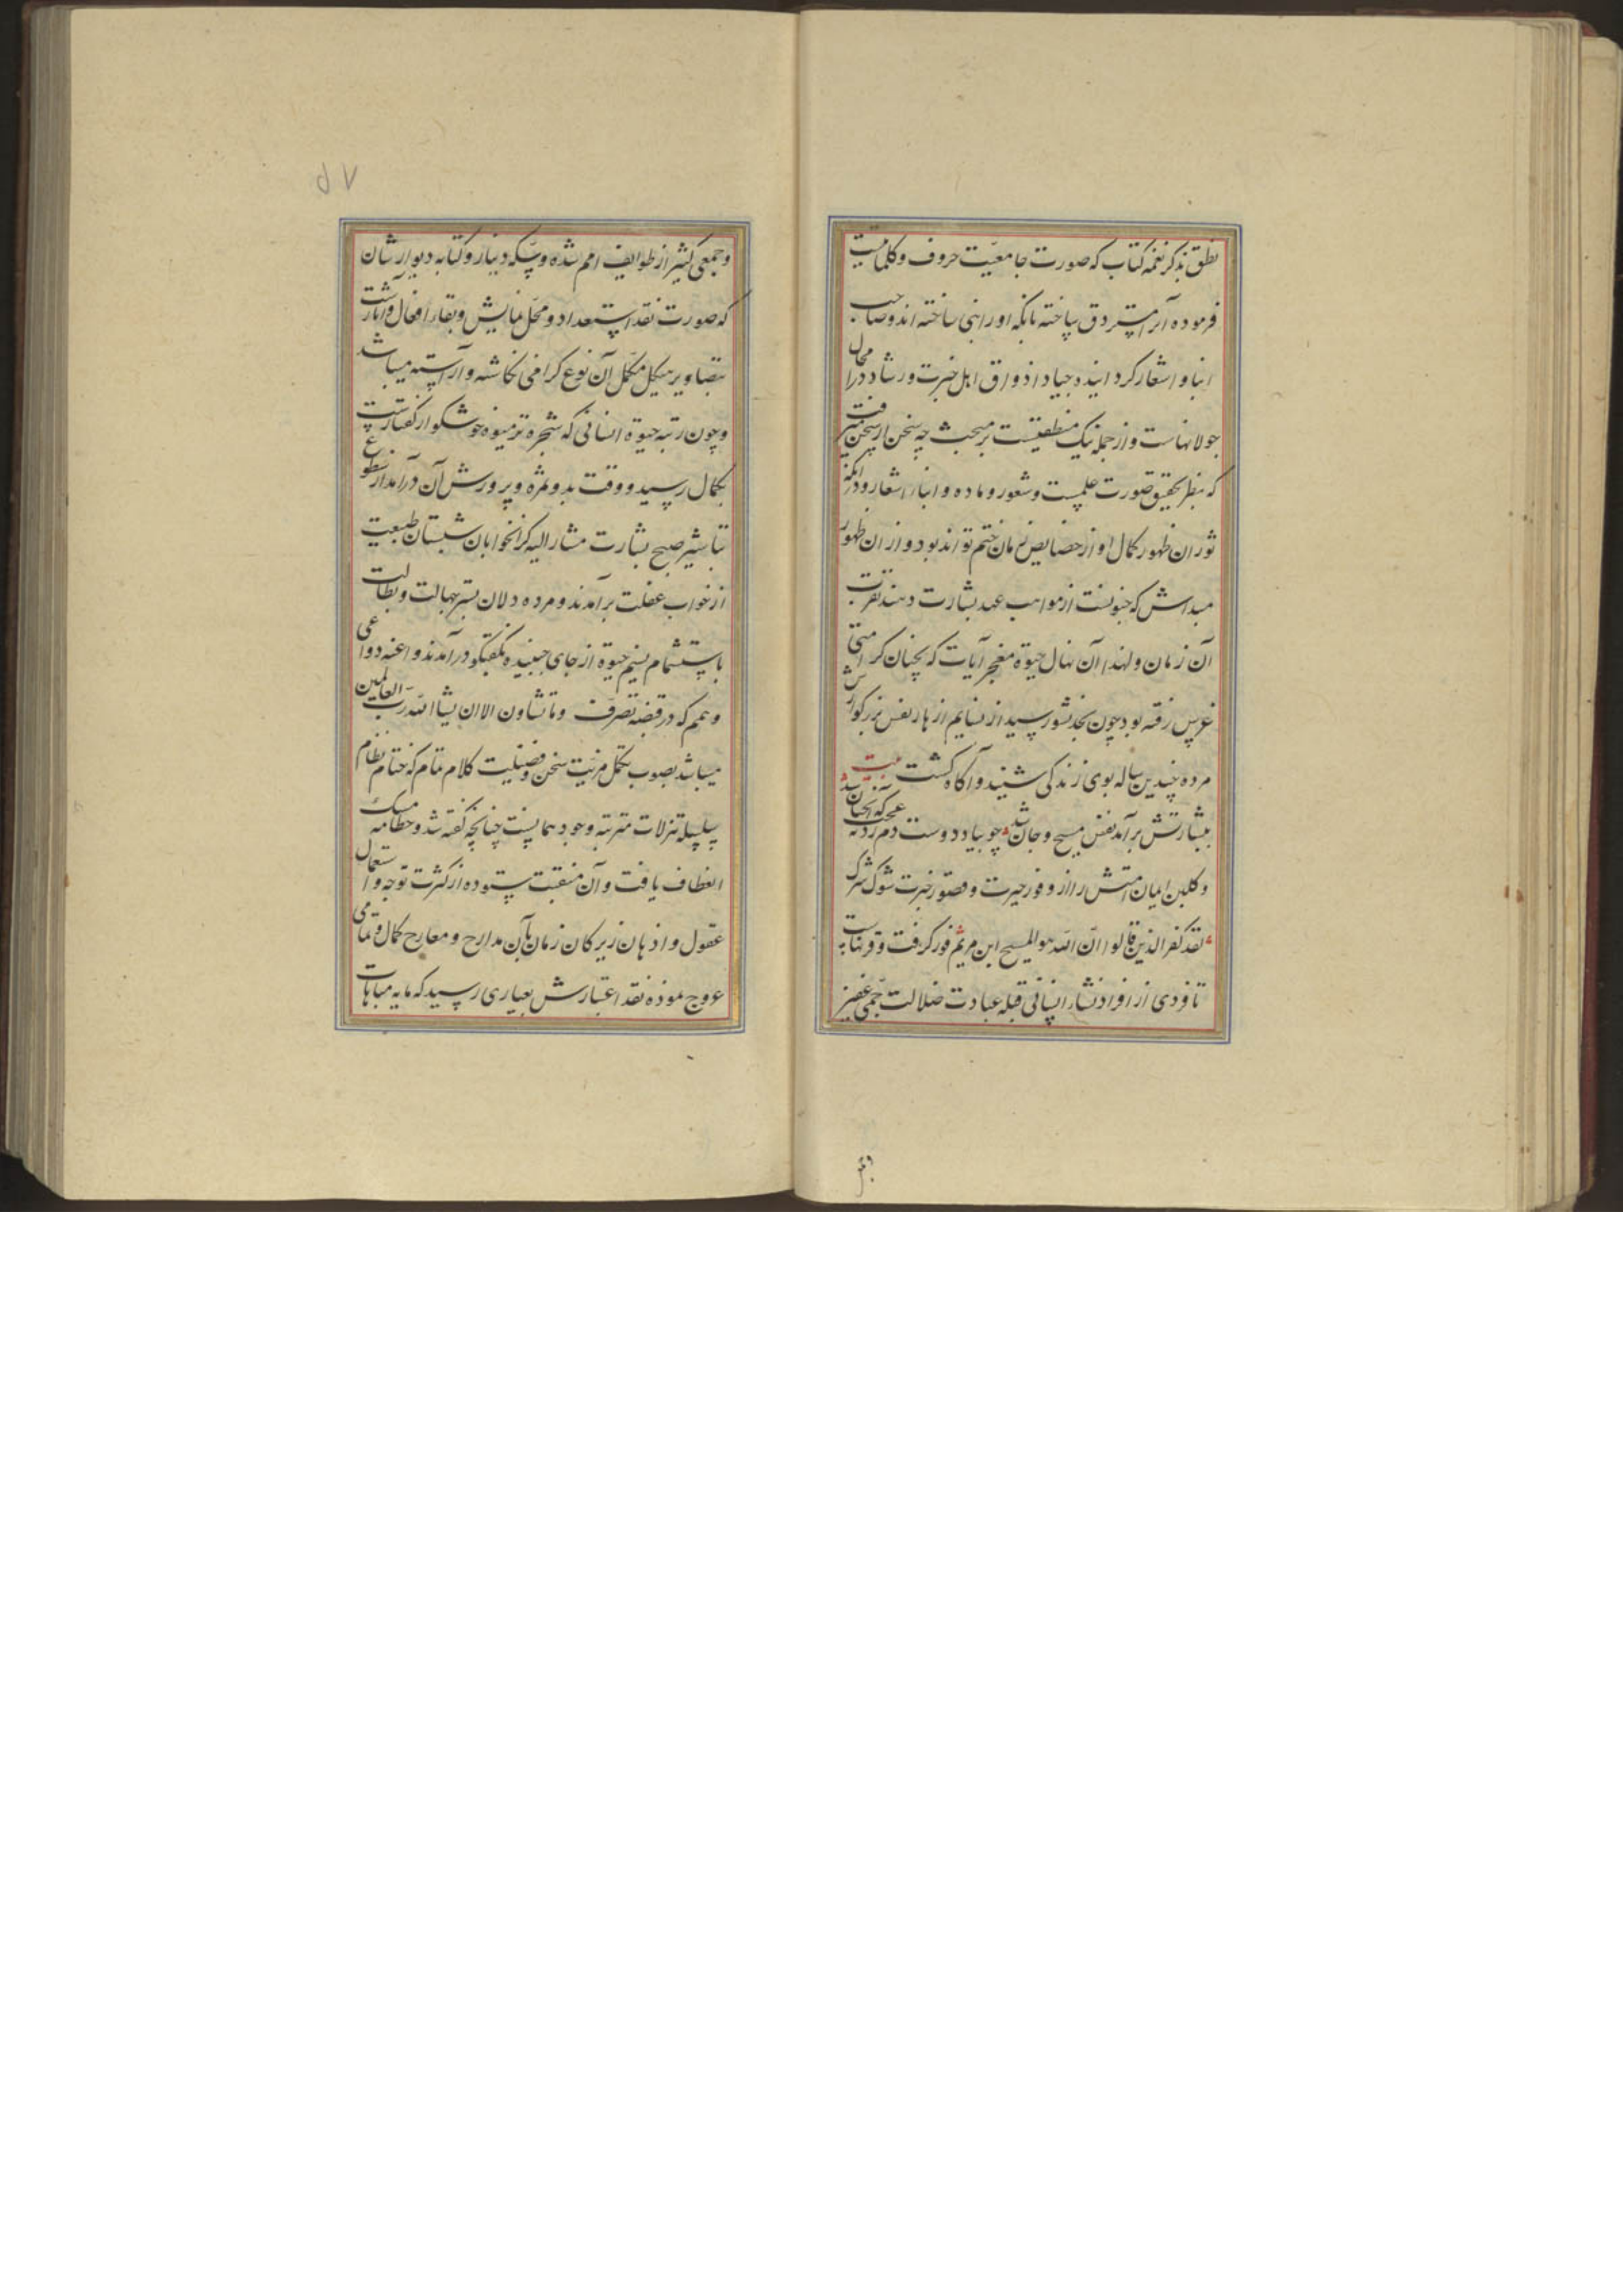 نطق بذکر نغمه کتاب که صورت جامعیت حروف و کلماتست
فرموده آنرا مستردق ساخته بانکه اورا نبی ساخته اند و صاحب
انبا و اشعار کردانیده جیاد اذواق اهل خبرت و رشاد در مجال
جولانهاست و از جمله نیک منطقیست بر مبحث چه سخن از سخن
که بنظر تحقیق صورت علمست و شعور و ماده و انباء اشعار و
ثوران ظهور کمال او از خصایص زمان ختم تواند بود و از ان ظهور
مبداش که جنبشست از مواهب عهد بشارت دهند بقرب
آن زمان و لهذا آن نهال حیوة معجز آیات که بچنان کرامتی
غرس رفته بود چون بحد نشو رسید از نسایم ازهار نفس بزرکوارش
مرده چندین ساله بوی زندکی شنید و آکاه کشت بیت
ببشارتش برآمد نفس مسیح و جان شد چو بیاد دوست دم زد نه عجب که آنچنان شد
و کلبن ایمان امتش را از وفور حیرت و قصور خبرت شوک شرک
لقد کفر الذین قالوا ان الله هو المسیح ابن مریم فرو کرفت و قرنهاست
تا فردی از افراد نشاء انسانی قبله عبادت ضلالت جمی غفیر
۵۷
و جمعی کثیر از طوایف امم شده و سکه دینار و کتابه دیوارشان
که صورت نقد استعداد و محل نمایش و بقاء افعال و آثارشست
بتصاویر هیکل مکمل آن نوع کرامی نکاشته و آراسته میباشد
و چون رتبه حیوة انسانی که شجره ثر میوه خوشکوار کفتارست
بکمال رسید و وقت بدو ثمره و پرورش آن درآمد از سطوع
تباشیر صبح بشارت مشار الیه کرانخوابان شبستان طبیعت
از خواب غفلت برآمدند و مرده دلان بستر جهالت و بطالت
باستشمام نسیم حیوة از جای جنبیده بکفتکو درآمدند و اعنه دواعی
و همم که در قبضه تصرف وما تشاون الا ان یشا الله رب العالمین
میباشد بصوب تکمل مزیت سخن و فضیلت کلام تمام که ختام نظام
سلسله تنزلات مترتبه وجود بهمانست چنانچه کفته شد و ختامه مسک
انعطاف یافت و آن منقبت ستوده از کثرت توجه و استعمال
عقول و اذهان زیرکان زمان بآن مدارج و معارج کمال و تمامی
عروج نموده نقد اعتبارش بعیاری رسید که مایه مباهات